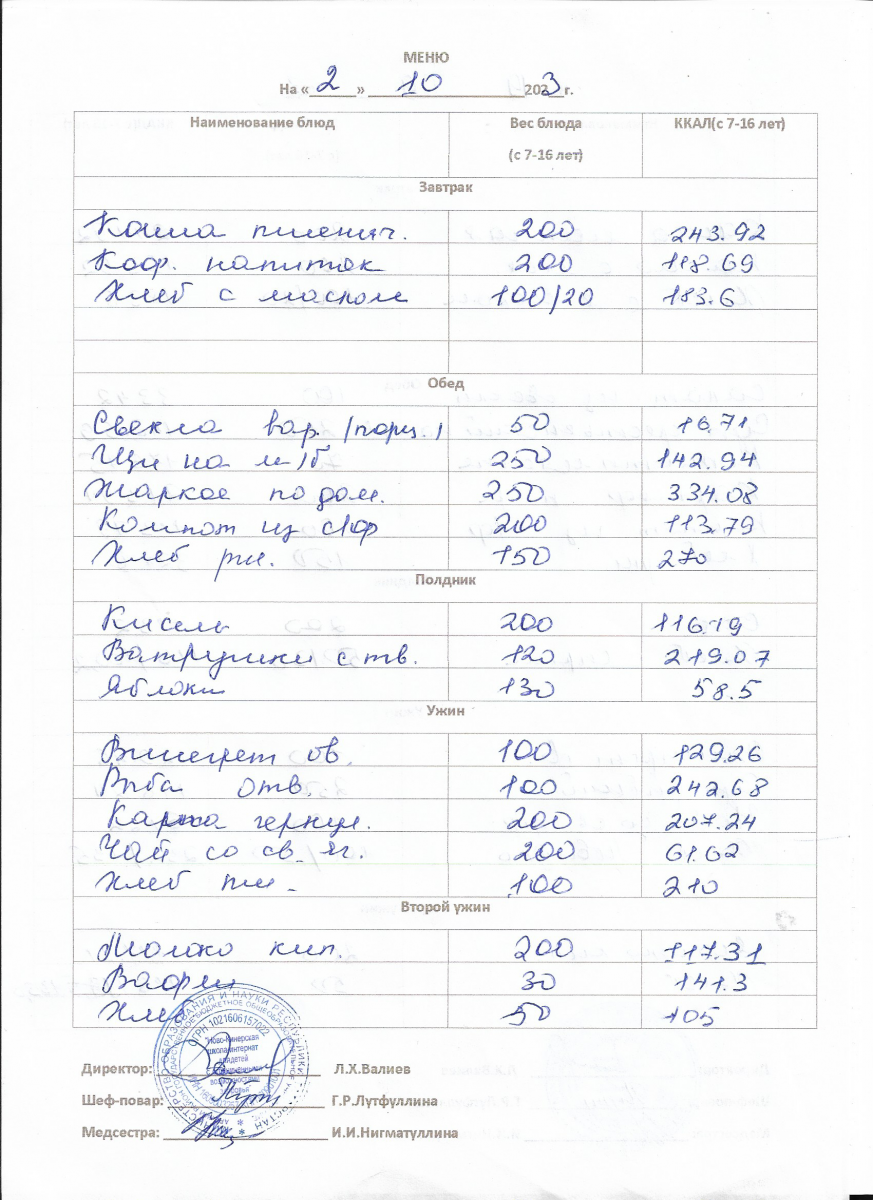 МЕНЮ
На « 2 » 10 2023 г.
Наименование блюд Вес блюда (с 7-16 лет) ККАЛ(с 7-16 лет)
Завтрак
Каша пшенич. 200 243.92
Коф. напиток 200 118.69
Хлеб с маслом 100/20 183.6
Обед
Свекла вар. /порц/ 50 16.71
Щи на м/б 250 142.94
Жаркое по дом. 250 334.08
Компот из с/ф 200 113.79
Хлеб рж. 150 270
Полдник
Кисель 200 116.19
Ватрушки с тв. 120 219.07
Яблоки 130 58.5
Ужин
Винегрет ов. 100 129.26
Рыба отв. 100 242.68
Каша геркул. 200 207.24
Чай со св. яг. 200 61.62
Хлеб пш. 100 210
Второй ужин
Молоко кип. 200 117.31
Вафли 30 141.3
Хлеб 50 105
Директор: Л.Х.Валиев
Шеф-повар: Г.Р.Лутфуллина
Медсестра: И.И.Нигматуллина
ОГРН 1021606157022
"Ново-Кинерская
школа-интернат
для детей